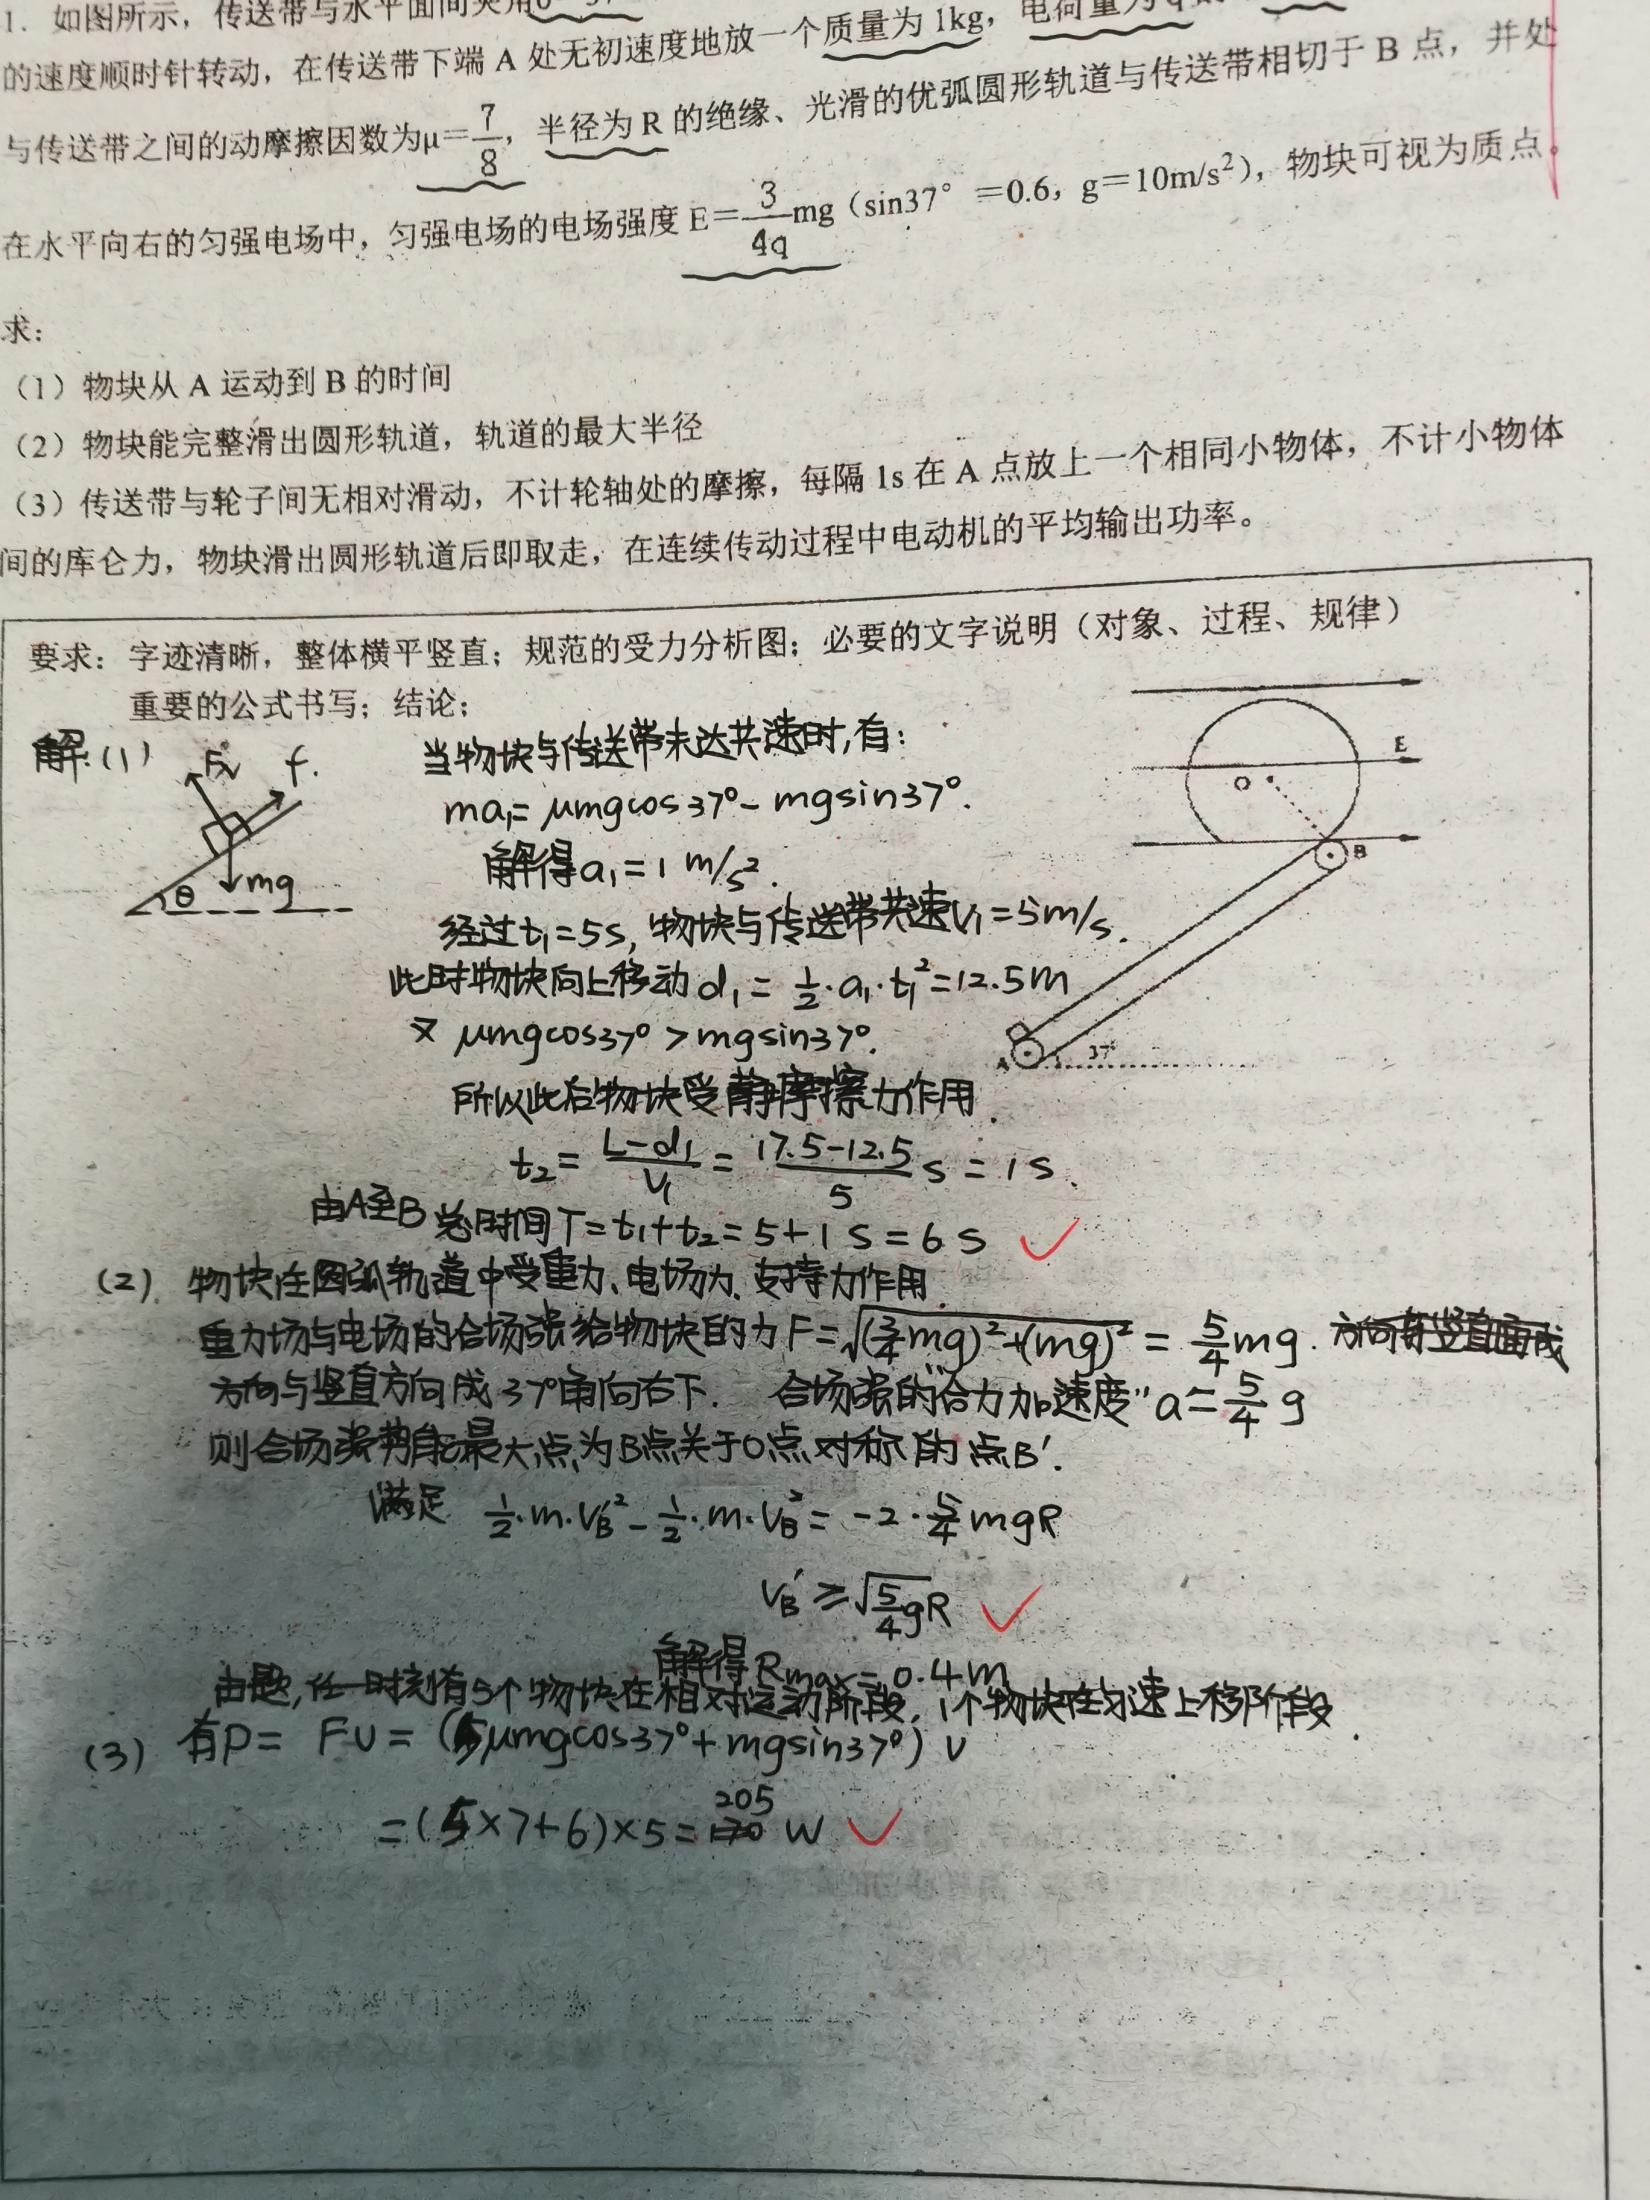 1. 如图所示，传送带与水平面间夹角θ
的速度顺时针转动，在传送带下端 A 处无初速度地放一个质量为 1kg，电荷量为 q
与传送带之间的动摩擦因数为μ=7/8，半径为 R 的绝缘、光滑的优弧圆形轨道与传送带相切于 B 点，并处
在水平向右的匀强电场中，匀强电场的电场强度 E=3/4q mg（sin37°=0.6，g=10m/s²），物块可视为质点。
求：
（1）物块从 A 运动到 B 的时间
（2）物块能完整滑出圆形轨道，轨道的最大半径
（3）传送带与轮子间无相对滑动，不计轮轴处的摩擦，每隔 1s 在 A 点放上一个相同小物体，不计小物体
间的库仑力，物块滑出圆形轨道后即取走，在连续传动过程中电动机的平均输出功率。
要求：字迹清晰，整体横平竖直；规范的受力分析图；必要的文字说明（对象、过程、规律）
重要的公式书写；结论；
解：(1)
FN f.
θ mg
当物块与传送带未达共速时,有：
ma₁= μmgcos37°- mgsin37°.
解得a₁=1 m/s².
经过t₁=5s, 物块与传送带共速V₁=5m/s.
此时物块向上移动 d₁= ½·a₁·t₁²=12.5m
又 μmgcos37° > mgsin37°.
所以此后物块受静摩擦力作用.
t₂= (L-d₁)/V₁ = (17.5-12.5)/5 s = 1s.
由A至B 总时间T=t₁+t₂=5+1 s=6 s
O E B A 37°
(2) 物块在圆弧轨道中受重力、电场力、支持力作用.
重力场与电场的合场强给物块的力F=√((3/4mg)²+(mg)²) = 5/4mg.
方向与竖直方向成37°角向右下. 合场强的"合力加速度"a=5/4 g
则合场强势能最大点为B点关于O点对称的点B′.
满足 ½·m·VB′²-½·m·VB²= -2·5/4mgR
VB′≥√(5/4gR)
解得Rmax=0.4m
由题,任一时刻有5个物块在相对运动阶段, 1个物块在匀速上移阶段.
(3) 有P= Fv = (5μmgcos37°+mgsin37°) v
=(5×7+6)×5=205 W